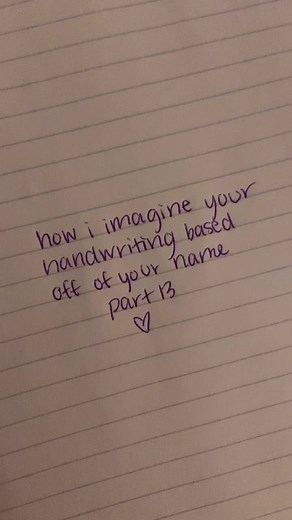 how i imagine your
handwriting based
off of your name
part 13